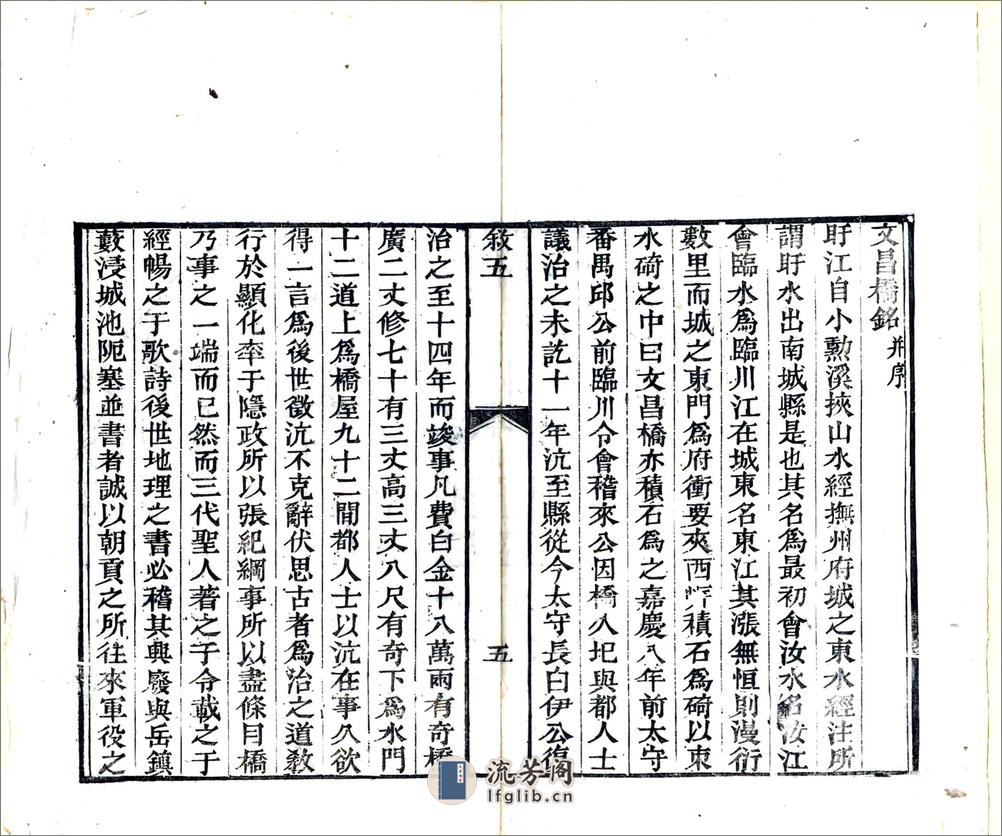 文昌橋銘 并序
盱江自小勲溪挾山水經撫州府城之東水經注所
謂盱水出南城縣是也其名爲最初會汝水名汝江
會臨水爲臨川江在城東名東江其漲無恒則漫衍
數里而城之東門爲府衝要夾西岸積石爲碕以束
水碕之中曰文昌橋亦積石爲之嘉慶八年前太守
番禺邱公前臨川令會稽來公因橋久圮與都人士
議治之未訖十一年沆至縣從今太守長白伊公復
敘五
五
治之至十四年而竣事凡費白金十八萬兩有奇橋
廣二丈修七十有三丈高三丈八尺有奇下爲水門
十二道上爲橋屋九十二閒都人士以沆在事久欲
得一言爲後世徵沆不克辭伏思古者爲治之道敎
行於顯化率于隱政所以張紀綱事所以盡條目橋
乃事之一端而已然而三代聖人著之于令載之于
經暢之于歌詩後世地理之書必稽其興廢與岳鎮
藪浸城池阨塞並書者誠以朝貢之所往來軍役之
流芳阁
lfglib.cn